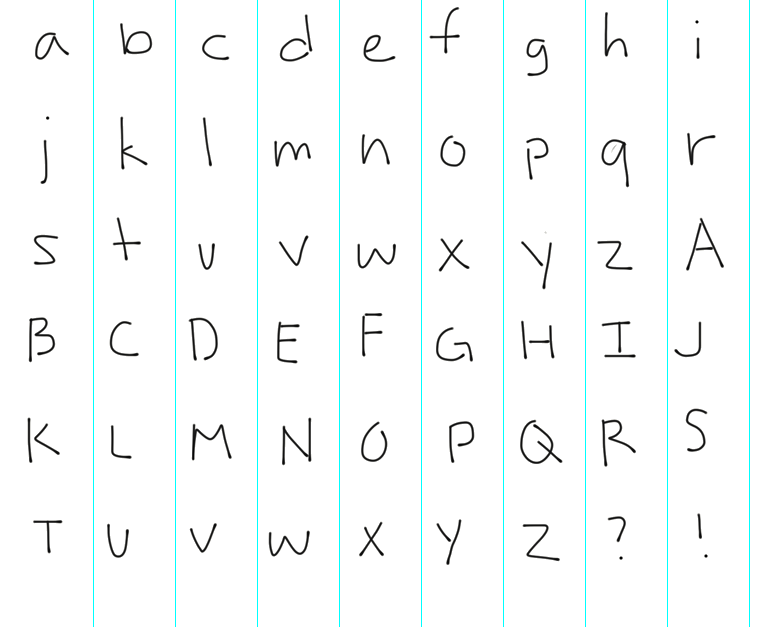 a b c d e f g h i
j k l m n o p q r
s t u v w x y z A
B C D E F G H I J
K L M N O P Q R S
T U V W X Y Z ? !